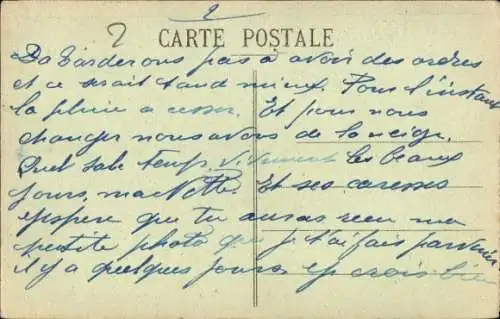 2
2
CARTE POSTALE
pas à avoir des ordres
et ce serait tand mieux. Pour l'instant
la pluie a cesser. Et pour nous
changer nous avons de la neige.
Quel sale temps. Vivement les beaux
jours, ma Et ses caresses
espere que tu auras recu ma
petite photo que je t'ai fais parvenir
il y a quelques jours. crois bien